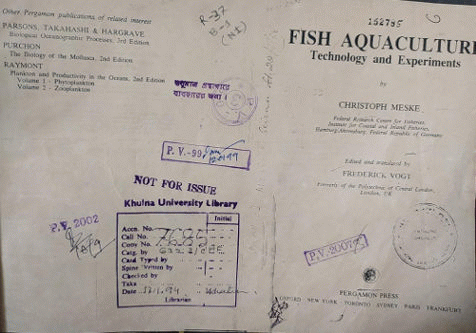 Other Pergamon publications of related interest
PARSONS, TAKAHASHI & HARGRAVE
Biological Oceanographic Processes, 3rd Edition
PURCHON
The Biology of the Mollusca, 2nd Edition
RAYMONT
Plankton and Productivity in the Oceans, 2nd Edition
Volume 1 - Phytoplankton
Volume 2 - Zooplankton
R-37
P. V.-99
NOT FOR ISSUE
Khulna University Library
Initial
Accn. No.
Call No.
Copy No.
Catg. by
Card Typed by
Spine Written by
Checked by
Taka
Date
Librarian
P.V. 2002
152795
FISH AQUACULTURE
Technology and Experiments
by
CHRISTOPH MESKE
Federal Research Centre for Fisheries,
Institute for Coastal and Inland Fisheries,
Hamburg/Ahrensburg, Federal Republic of Germany
Edited and translated by
FREDERICK VOGT
Formerly of the Polytechnic of Central London,
London, UK
P.V.-2007
PERGAMON PRESS
OXFORD NEW YORK TORONTO SYDNEY PARIS FRANKFURT